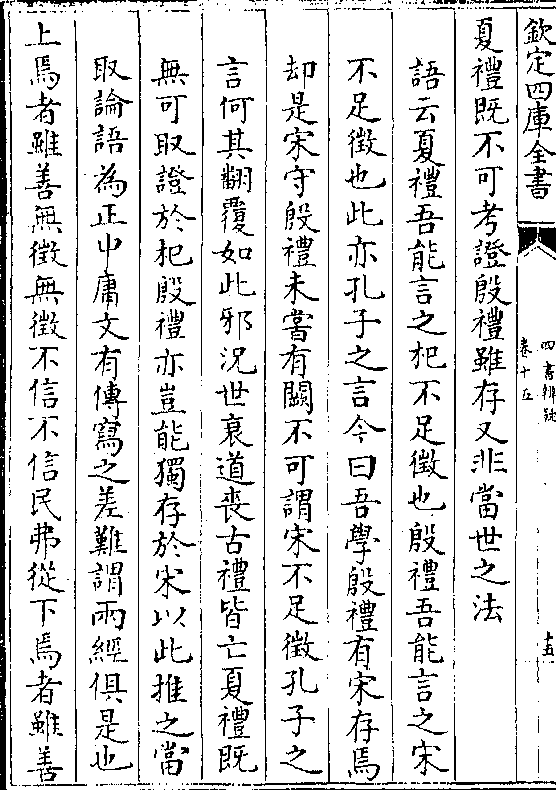 欽定四庫全書
四書辨疑
卷十五
十五
夏禮既不可考證殷禮雖存又非當世之法
語云夏禮吾能言之杞不足徵也殷禮吾能言之宋
不足徵也此亦孔子之言今曰吾學殷禮有宋存焉
却是宋守殷禮未嘗有闕不可謂宋不足徵孔子之
言何其翻覆如此邪況世衰道喪古禮皆亡夏禮既
無可取證於杞殷禮亦豈能獨存於宋以此推之當
取論語為正中庸文有傳寫之差難謂兩經俱是也
上焉者雖善無徵無徵不信不信民弗從下焉者雖善